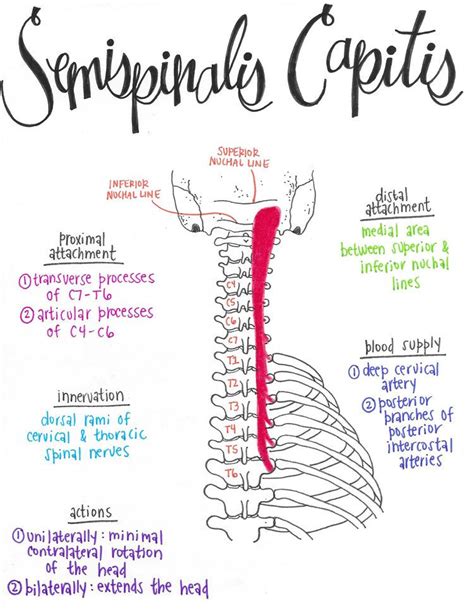 Semispinalis Capitis
SUPERIOR
NUCHAL LINE
INFERIOR
NUCHAL LINE
distal
attachment
medial area
between superior &
inferior nuchal
lines
proximal
attachment
① transverse processes
of C7-T6
② articular processes
of C4-C6
C4
C5
C6
C7
T1
T2
T3
T4
T5
T6
blood supply
① deep cervical
artery
② posterior
branches of
posterior
intercostal
arteries
innervation
dorsal rami of
cervical & thoracic
spinal nerves
actions
① unilaterally: minimal
contralateral rotation
of the head
② bilaterally: extends the head